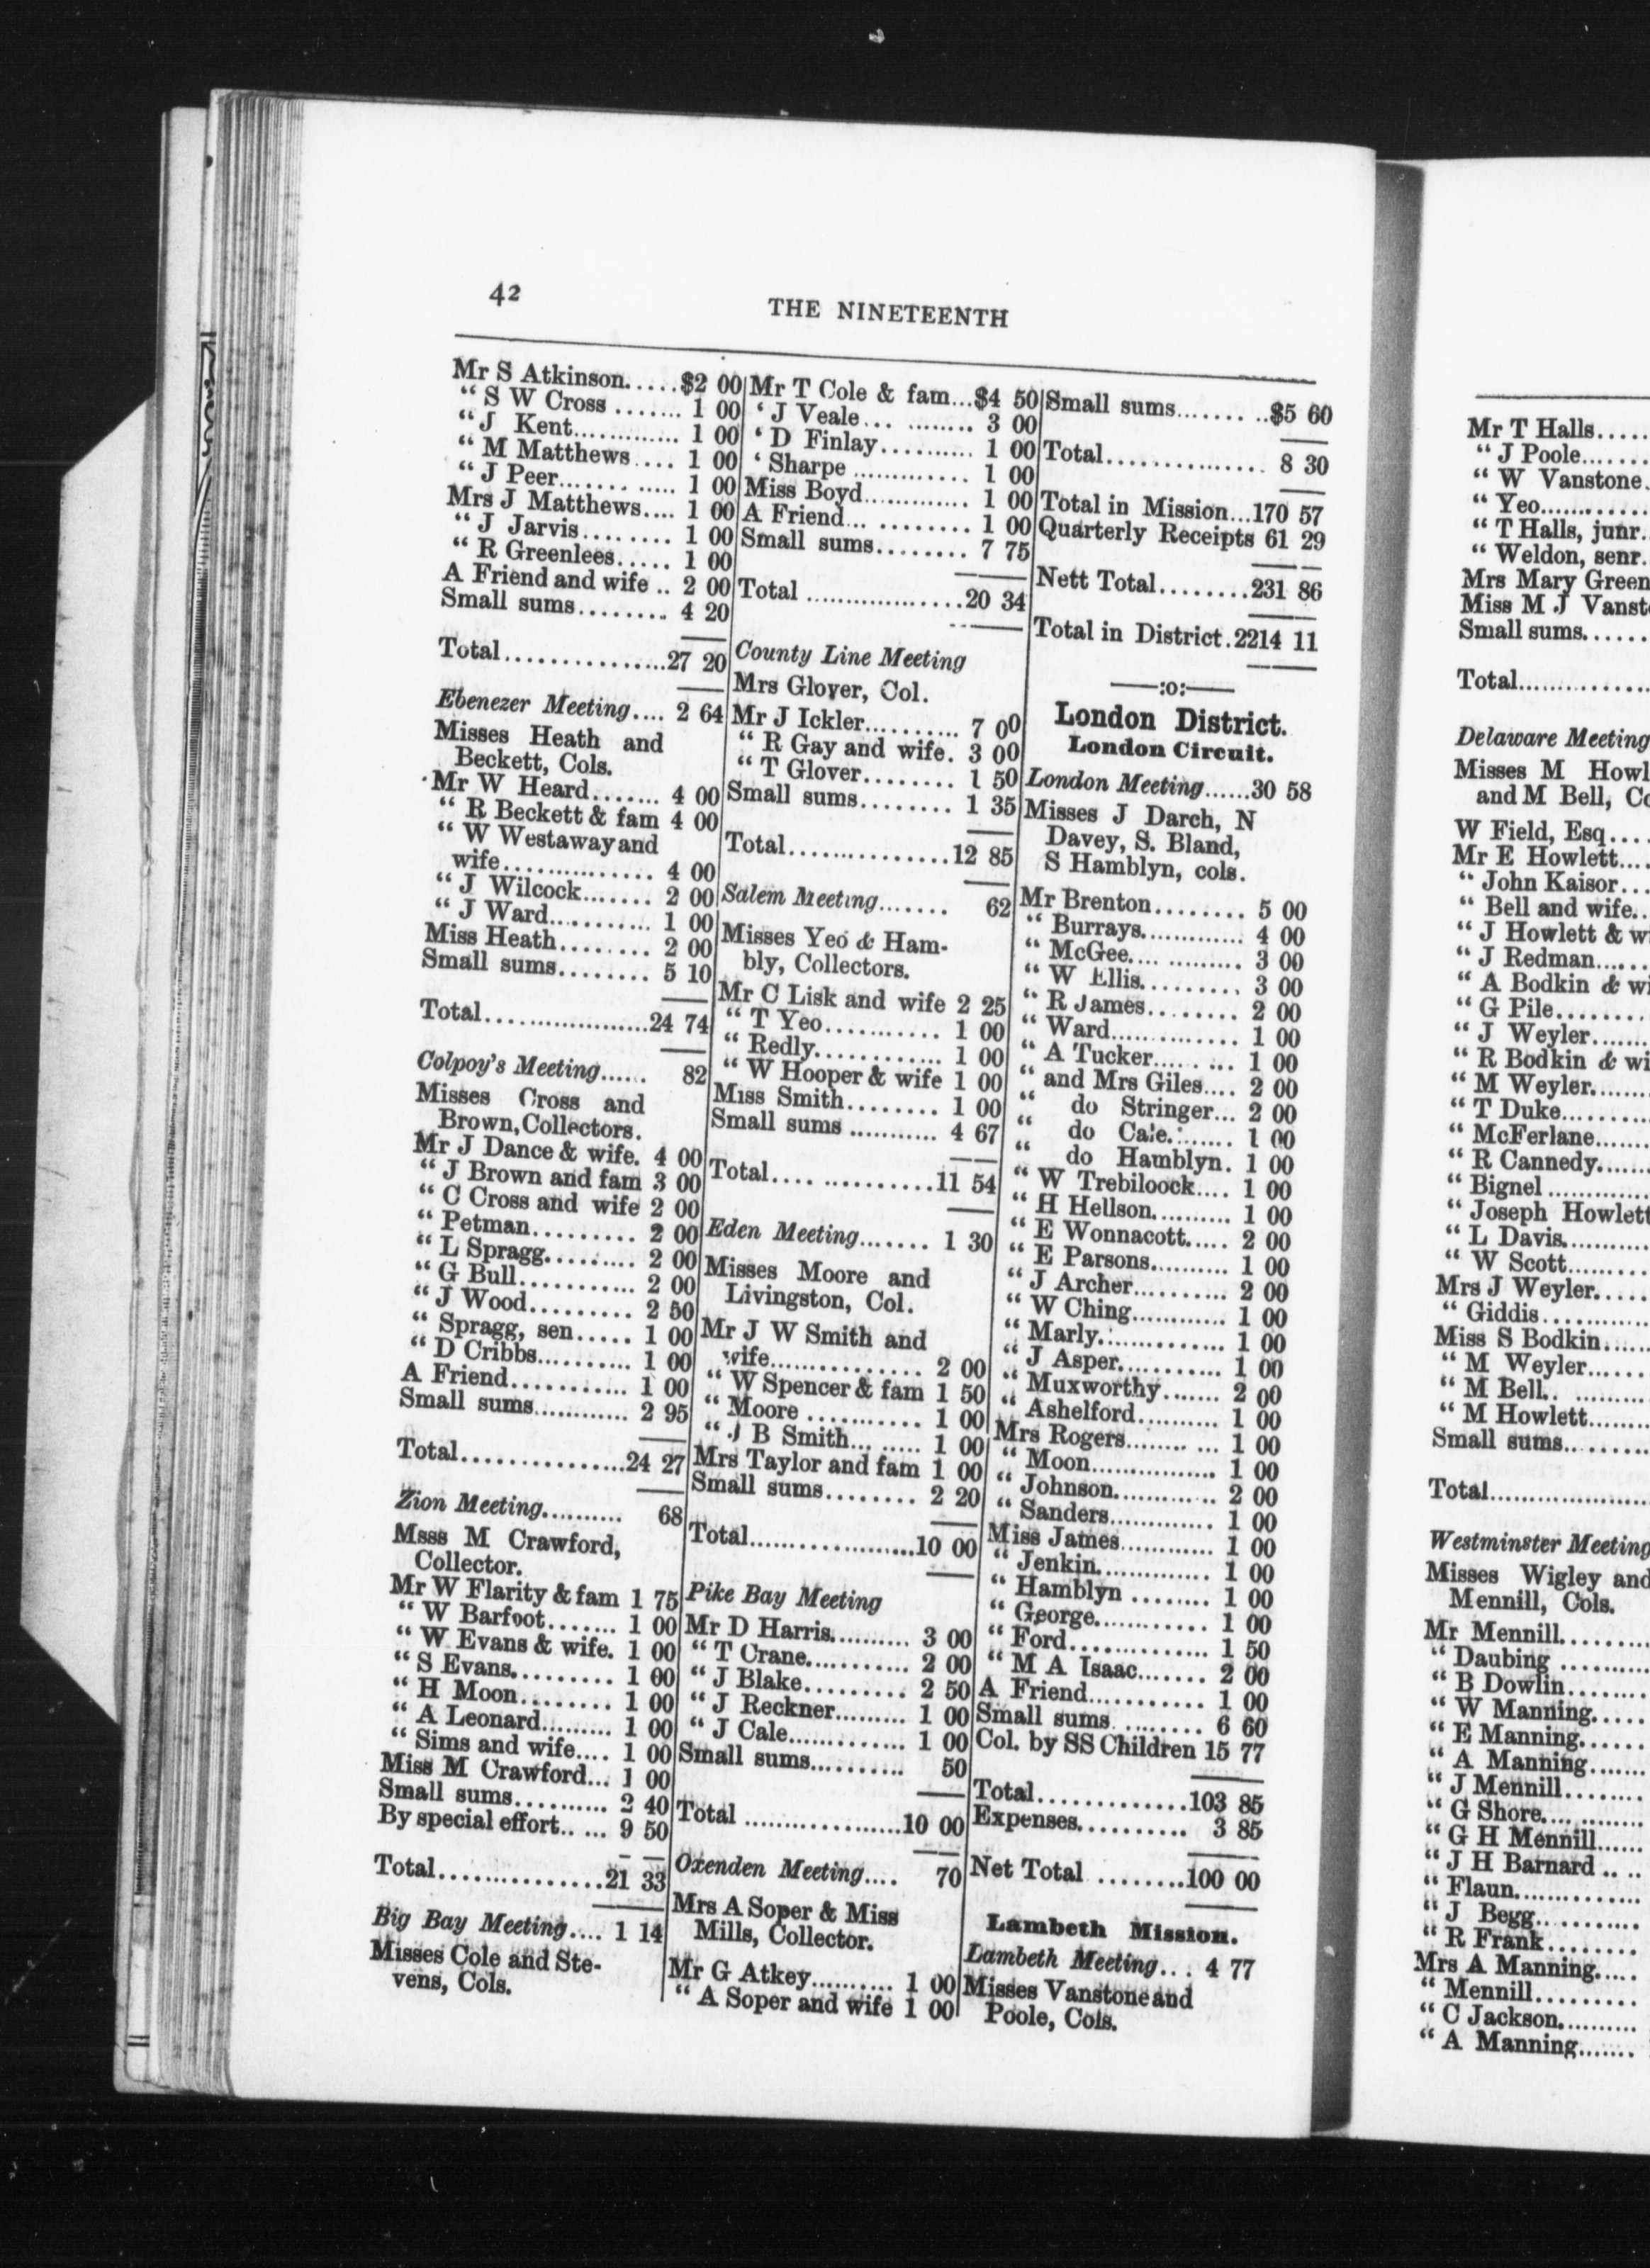 42
THE NINETEENTH
Mr S Atkinson.....$2 00
“ S W Cross ....... 1 00
“ J Kent............. 1 00
“ M Matthews.... 1 00
“ J Peer............. 1 00
Mrs J Matthews.... 1 00
“ J Jarvis......... 1 00
“ R Greenlees..... 1 00
A Friend and wife .. 2 00
Small sums......... 4 20
Total...............27 20
Ebenezer Meeting.... 2 64
Misses Heath and
Beckett, Cols.
Mr W Heard....... 4 00
“ R Beckett & fam 4 00
“ W Westaway and
wife............... 4 00
“ J Wilcock....... 2 00
“ J Ward.......... 1 00
Miss Heath......... 2 00
Small sums........ 5 10
Total...................24 74
Colpoy's Meeting...... 82
Misses Cross and
Brown, Collectors.
Mr J Dance & wife. 4 00
“ J Brown and fam 3 00
“ C Cross and wife 2 00
“ Petman.......... 2 00
“ L Spragg......... 2 00
“ G Bull............ 2 00
“ J Wood.......... 2 50
“ Spragg, sen..... 1 00
“ D Cribbs.......... 1 00
A Friend............ 1 00
Small sums............ 2 95
Total...............24 27
Zion Meeting.......... 68
Msss M Crawford,
Collector.
Mr W Flarity & fam 1 75
“ W Barfoot....... 1 00
“ W Evans & wife. 1 00
“ S Evans.......... 1 00
“ H Moon......... 1 00
“ A Leonard......... 1 00
“ Sims and wife.... 1 00
Miss M Crawford... 1 00
Small sums.......... 2 40
By special effort.. ... 9 50
Total...............21 33
Big Bay Meeting.... 1 14
Misses Cole and Ste-
vens, Cols.
Mr T Cole & fam...$4 50
‘ J Veale... ........ 3 00
‘ D Finlay.......... 1 00
‘ Sharpe ............ 1 00
Miss Boyd............ 1 00
A Friend... ......... 1 00
Small sums........ 7 75
Total .................20 34
County Line Meeting
Mrs Glover, Col.
Mr J Ickler.......... 7 00
“ R Gay and wife. 3 00
“ T Glover........ 1 50
Small sums........ 1 35
Total...............12 85
Salem Meeting....... 62
Misses Yeo & Ham-
bly, Collectors.
Mr C Lisk and wife 2 25
“ T Yeo............ 1 00
“ Redly............ 1 00
“ W Hooper & wife 1 00
Miss Smith........ 1 00
Small sums ........... 4 67
Total.... ............11 54
Eden Meeting....... 1 30
Misses Moore and
Livingston, Col.
Mr J W Smith and
wife............... 2 00
“ W Spencer & fam 1 50
“ Moore ........... 1 00
“ J B Smith... ..... 1 00
Mrs Taylor and fam 1 00
Small sums........ 2 20
Total..................10 00
Pike Bay Meeting
Mr D Harris.......... 3 00
“ T Crane........... 2 00
“ J Blake.......... 2 50
“ J Reckner......... 1 00
“ J Cale............. 1 00
Small sums.......... 50
Total ..................10 00
Oxenden Meeting.... 70
Mrs A Soper & Miss
Mills, Collector.
Mr G Atkey.......... 1 00
“ A Soper and wife 1 00
Small sums....... ..$5 60
Total................ 8 30
Total in Mission...170 57
Quarterly Receipts 61 29
Nett Total........231 86
Total in District.2214 11
——:o:——
London District.
London Circuit.
London Meeting......30 58
Misses J Darch, N
Davey, S. Bland,
S Hamblyn, cols.
Mr Brenton........ 5 00
“ Burrays............ 4 00
“ McGee.... ......... 3 00
“ W Ellis.......... 3 00
“ R James......... 2 00
“ Ward.............. 1 00
“ A Tucker..... ... 1 00
“ and Mrs Giles.... 2 00
“ do Stringer... 2 00
“ do Cale........ 1 00
“ do Hamblyn. 1 00
“ W Trebiloock.... 1 00
“ H Hellson.......... 1 00
“ E Wonnacott..... 2 00
“ E Parsons.......... 1 00
“ J Archer.......... 2 00
“ W Ching............ 1 00
“ Marly.............. 1 00
“ J Asper........... 1 00
“ Muxworthy....... 2 00
“ Ashelford.......... 1 00
Mrs Rogers........ ... 1 00
“ Moon................ 1 00
“ Johnson............ 2 00
“ Sanders............. 1 00
Miss James............ 1 00
“ Jenkin.............. 1 00
“ Hamblyn ........ 1 00
“ George............ 1 00
“ Ford.............. 1 50
“ M A Isaac....... 2 00
A Friend............ 1 00
Small sums. ........ 6 60
Col. by SS Children 15 77
Total..............103 85
Expenses.......... 3 85
Net Total ........100 00
Lambeth Mission.
Lambeth Meeting... 4 77
Misses Vanstone and
Poole, Cols.
Mr T Halls.....
“ J Poole.......
“ W Vanstone.
“ Yeo...........
“ T Halls, junr.
“ Weldon, senr.
Mrs Mary Green
Miss M J Vanst
Small sums......
Total..............
Delaware Meeting
Misses M Howl
and M Bell, Co
W Field, Esq....
Mr E Howlett....
“ John Kaisor...
“ Bell and wife..
“ J Howlett & w
“ J Redman......
“ A Bodkin & wi
“ G Pile.........
“ J Weyler.......
“ R Bodkin & wi
“ M Weyler.......
“ T Duke.........
“ McFerlane.......
“ R Cannedy.......
“ Bignel ............
“ Joseph Howlett
“ L Davis..........
“ W Scott.........
Mrs J Weyler.....
“ Giddis............
Miss S Bodkin......
“ M Weyler......
“ M Bell.. ........
“ M Howlett........
Small sums... .......
Total..................
Westminster Meeting
Misses Wigley and
Mennill, Cols.
Mr Mennill.........
“ Daubing .........
“ B Dowlin.........
“ W Manning.....
“ E Manning......
“ A Manning.......
“ J Mennill.........
“ G Shore...........
“ G H Mennill......
“ J H Barnard .. ..
“ Flaun..............
“ J Begg...........
“ R Frank.........
Mrs A Manning.....
“ Mennill..........
“ C Jackson..........
“ A Manning.......